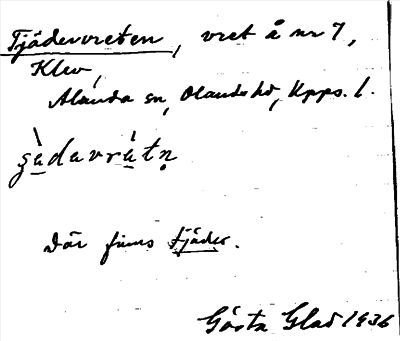 Tjädervreten, vret å nr 7,
Klev,
Alunda sn, Olands hd, Upps. l.
ʂàdavràtṇ
Där finns tjäder.
Gösta Glad 1936